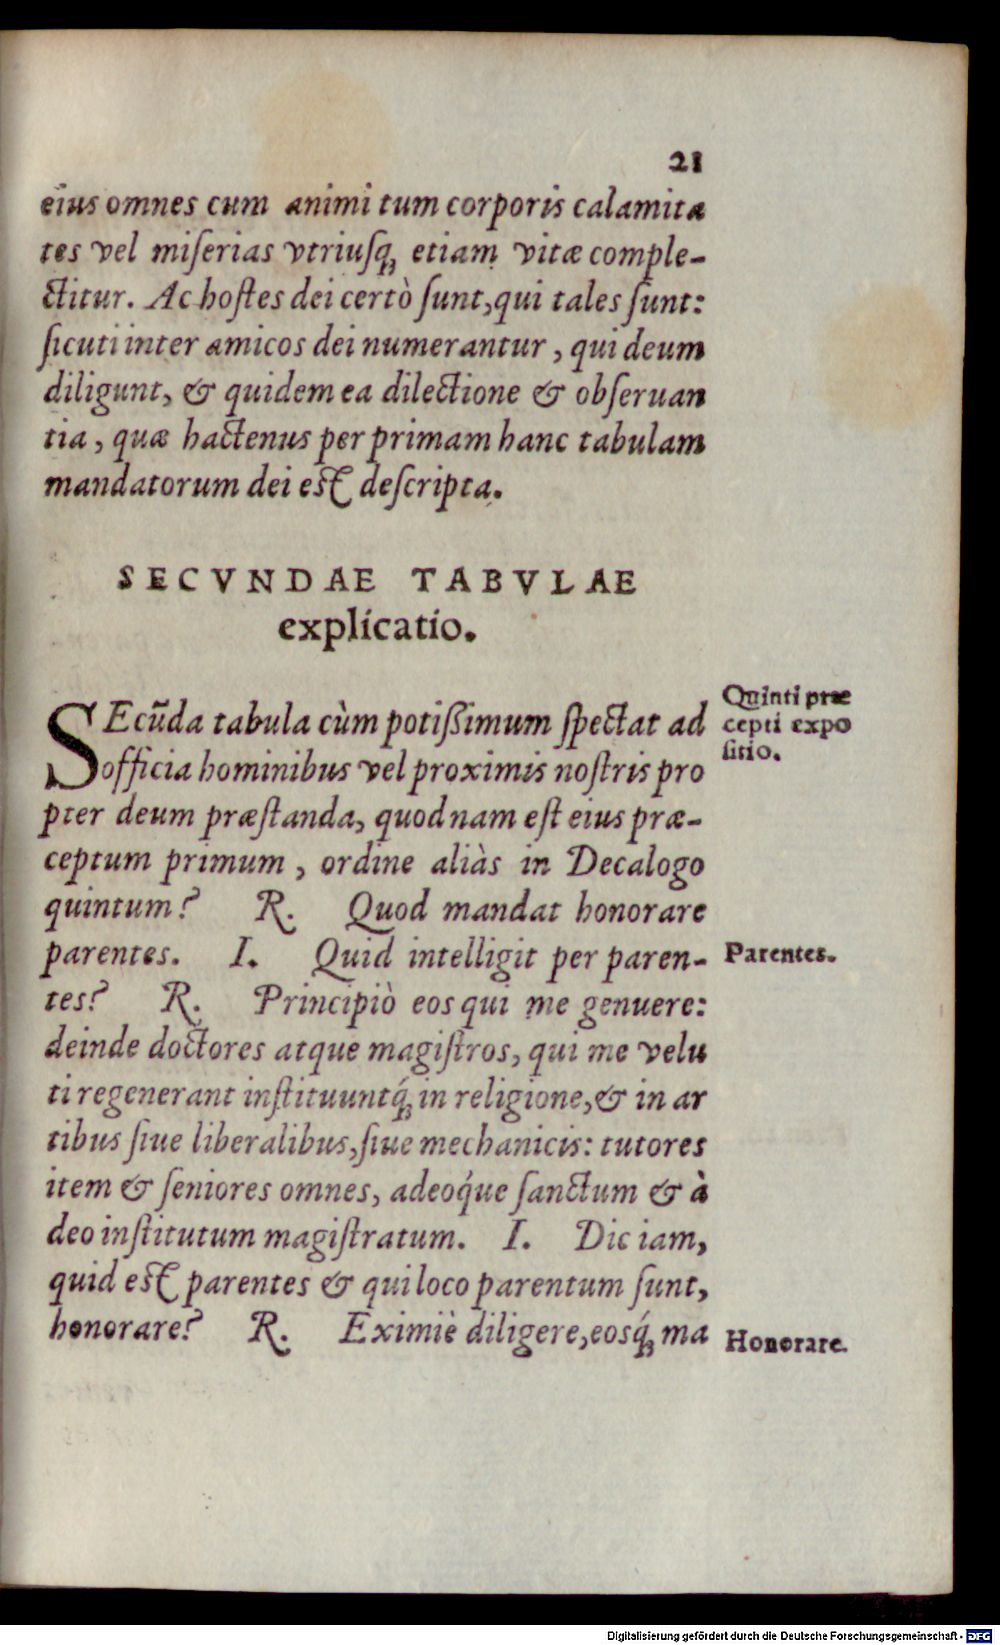 21
eius omnes cum animi tum corporis calamita
tes vel miſerias vtriuſq́ꝫ etiam vitæ comple-
ctitur. Ac hoſtes dei certò ſunt, qui tales ſunt:
ſicuti inter amicos dei numerantur, qui deum
diligunt, & quidem ea dilectione & obſeruan
tia, quæ hactenus per primam hanc tabulam
mandatorum dei eſt deſcripta.
SECVNDAE TABVLAE
explicatio.
SEcũda tabula cùm potiſſimum ſpectat ad
officia hominibus vel proximis noſtris pro
pter deum præſtanda, quodnam eſt eius præ-
ceptum primum, ordine aliàs in Decalogo
quintum? R. Quod mandat honorare
parentes. I. Quid intelligit per paren-
tes? R. Principiò eos qui me genuere:
deinde doctores atque magiſtros, qui me velu
ti regenerant inſtituuntq́ꝫ in religione, & in ar
tibus ſiue liberalibus, ſiue mechanicis: tutores
item & ſeniores omnes, adeoq́ue ſanctum & à
deo inſtitutum magiſtratum. I. Dic iam,
quid eſt parentes & qui loco parentum ſunt,
honorare? R. Eximiè diligere, eosq́ꝫ ma
Quinti præ
cepti expo
ſitio.
Parentes.
Honorare.
Digitalisierung gefördert durch die Deutsche Forschungsgemeinschaft - DFG